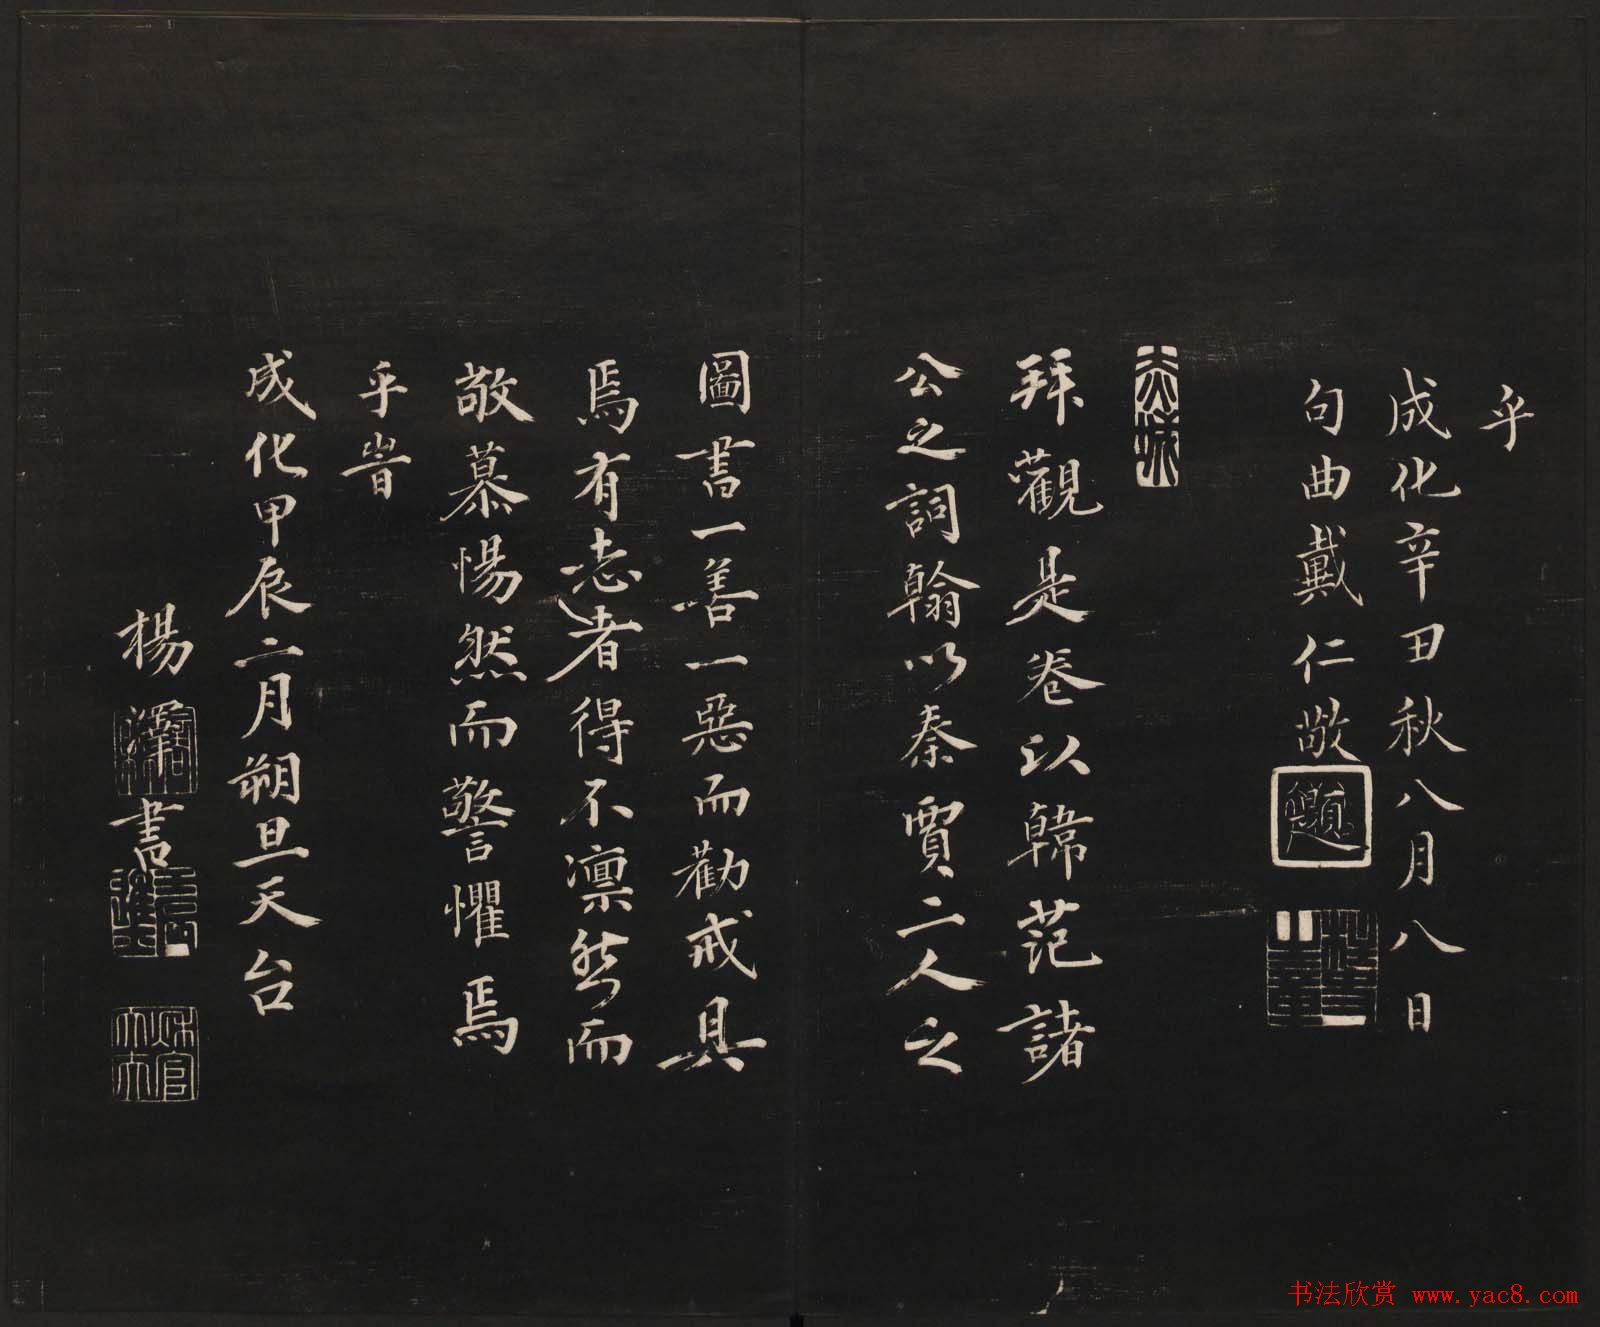 乎
成化辛丑秋八月八日
句曲戴仁敬題
拜觀是卷以韓范諸
公之詞翰以秦賈二人之
圖書一善一惡而勸戒具
焉有志者得不凛然而
敬慕惕然而警懼焉
乎旹
成化甲辰二月朔旦天台
楊澤書
书法欣赏 www.yac8.com